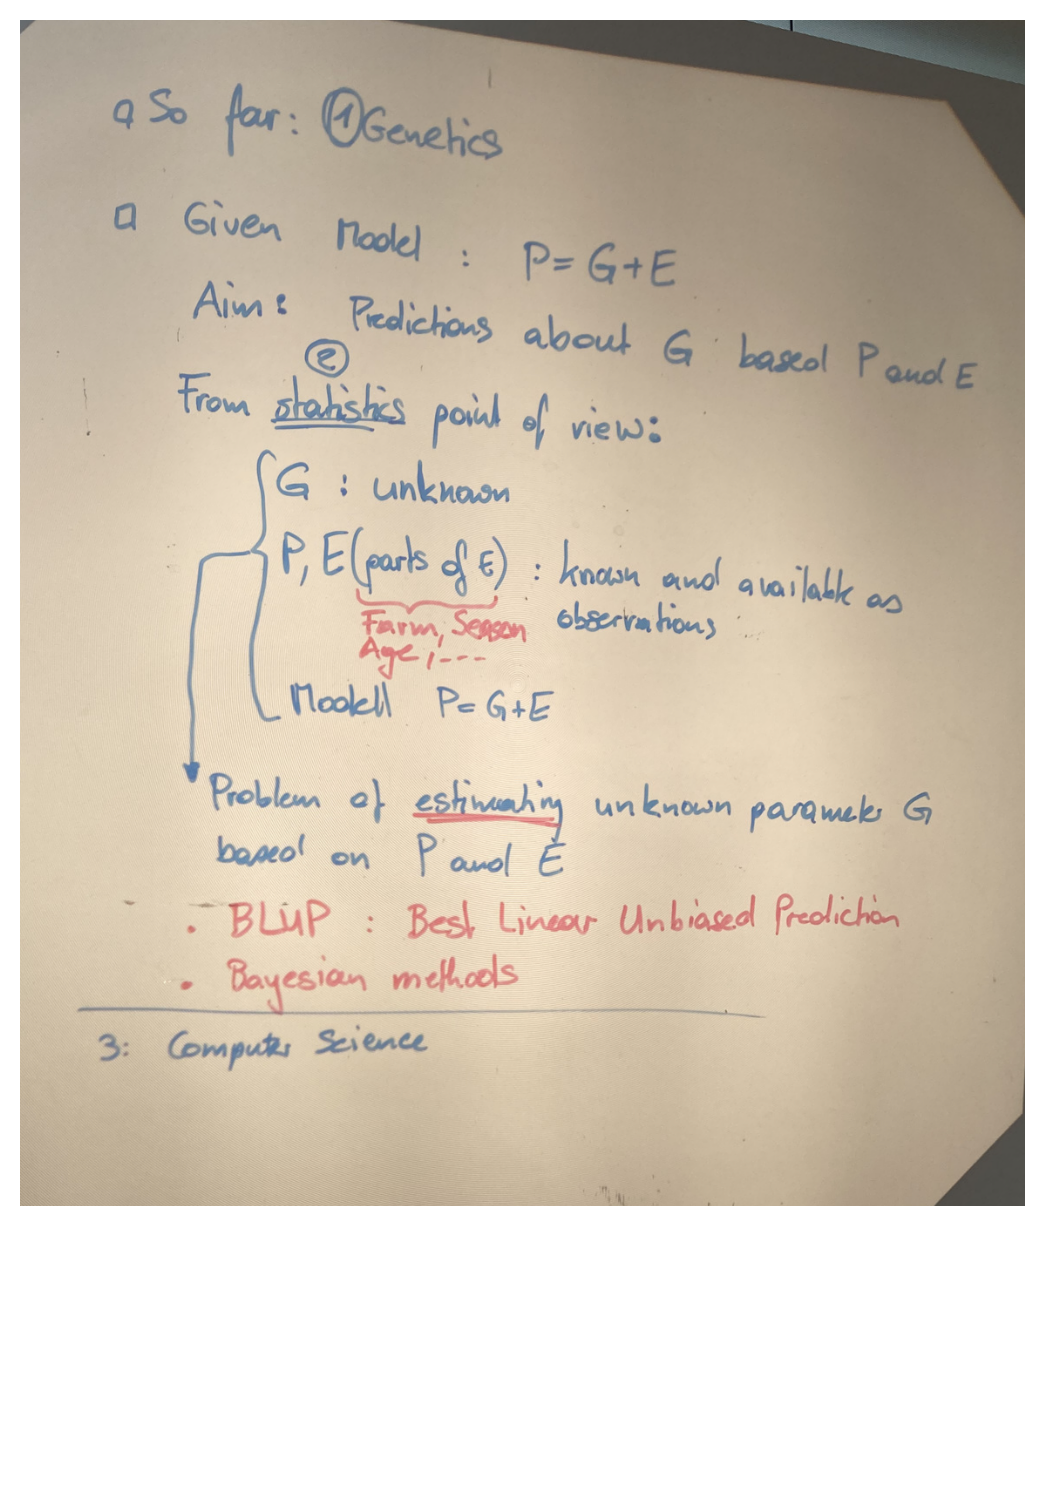 So far: ① Genetics
Given Model : P = G + E
Aim: Predictions about G based P and E
②
From statistics point of view:
G : unknown
P, E (parts of E) : known and available as
observations
Farm, Season
Age, ,---
Modell P = G + E
Problem of estimating unknown parameter G
based on P and E
• BLUP : Best Linear Unbiased Prediction
• Bayesian methods
3: Computer Science